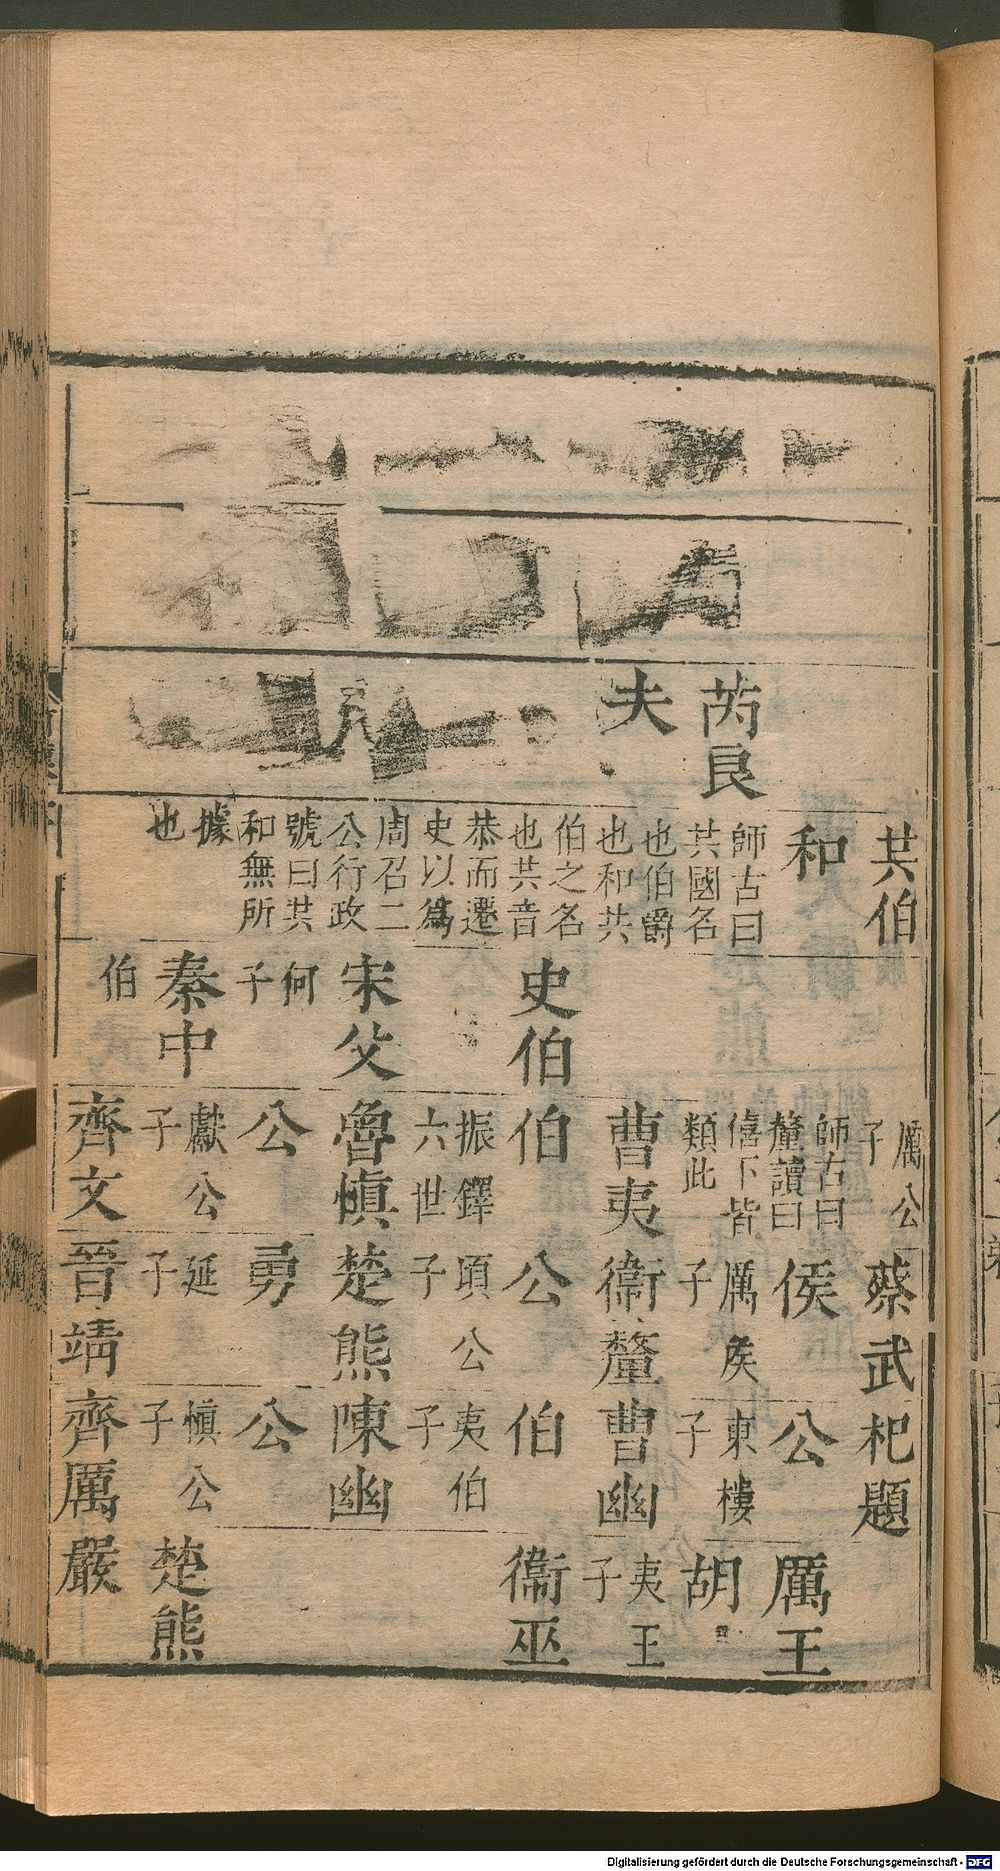 芮良
夫
共伯
和
師古曰
共國名
也伯爵
也和共
伯之名
也共音
恭而遷
史以爲
周召二
公行政
號曰共
和無所
據
也
史伯
宋父
何
子
秦中
伯
厲公
子
師古曰
釐讀曰
僖下皆
類此
曹夷
伯
振鐸
六世
魯愼
公
獻公
子
齊文
蔡武
侯
厲侯
子
衛釐
公
頃公
子
楚熊
勇
延
子
晉靖
杞題
公
東樓
子
曹幽
伯
夷伯
子
陳幽
公
愼公
子
齊厲
厲王
胡
夷王
子
衛巫
楚熊
嚴
Digitalisierung gefördert durch die Deutsche Forschungsgemeinschaft - DFG